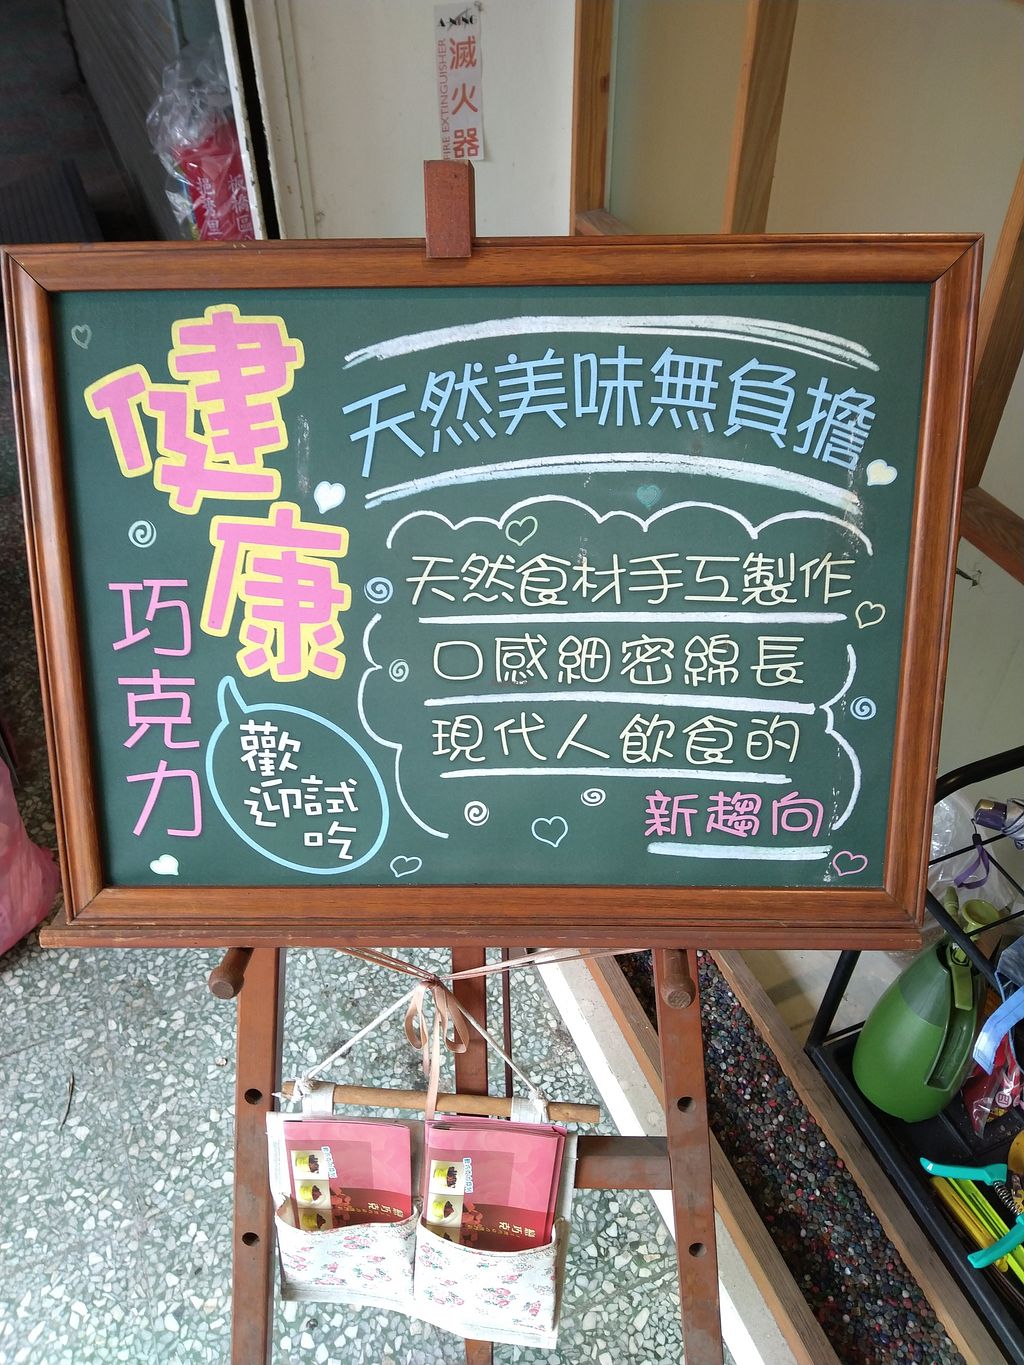 A-NING
滅火器
FIRE EXTINGUISHER
板橋區
健康
巧克力
歡迎試吃
天然美味無負擔
天然食材手工製作
口感細密綿長
現代人飲食的
新趨向
黑巧克